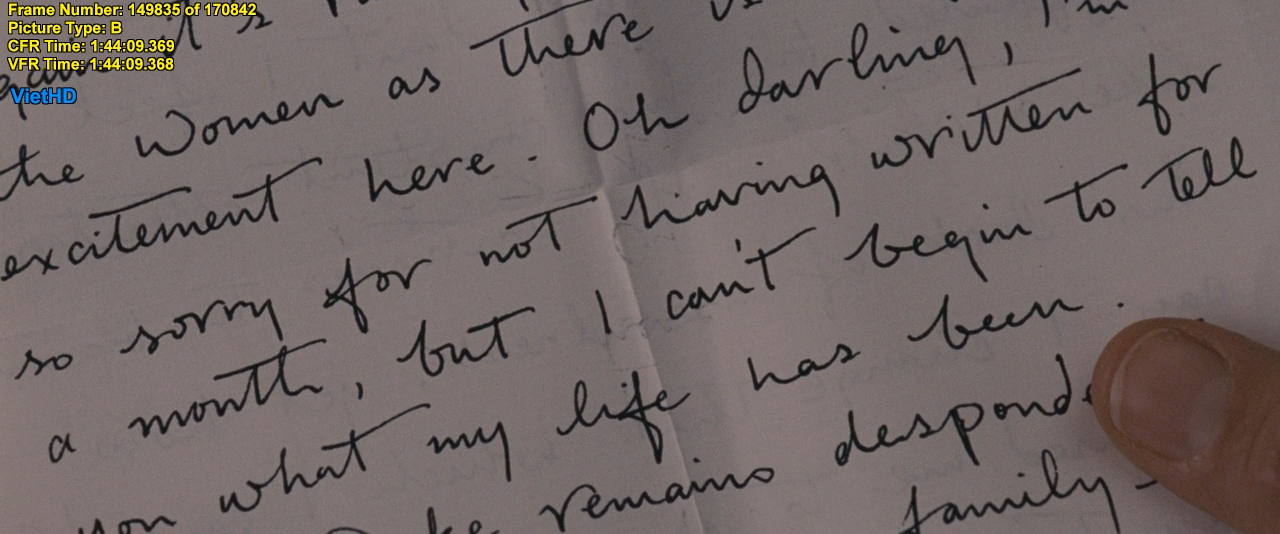 Frame Number: 149835 of 170842
Picture Type: B
CFR Time: 1:44:09.369
VFR Time: 1:44:09.368
VietHD
the women as there
excitement here. Oh darling, I'm
so sorry for not having written for
a month, but I can't begin to tell
you what my life has been.
remains desponde
family -